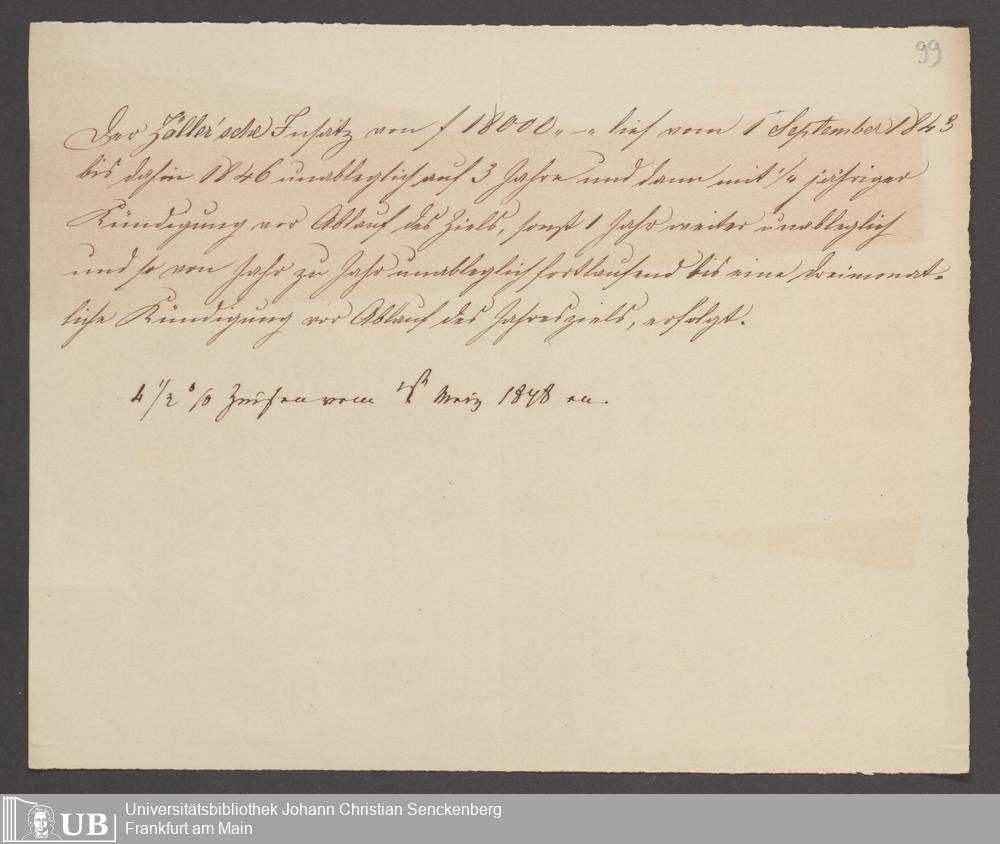 99
Der Zöller'sche Insatz von f 18000 „–„ lief vom 1 September 1843
bis dahin 1846 unableglich auf 3 Jahre und dann mit 1/4 jähriger
Kündigung vor Ablauf des Ziels, sonst 1 Jahr weiter unableglich
und so von Jahr zu Jahr unableglich fortlaufend bis eine dreimonat-
liche Kündigung vor Ablauf des Jahresziels, erfolgt.
4 1/2 % Zinsen vom 1st März 1848 an.
UB
Universitätsbibliothek Johann Christian Senckenberg
Frankfurt am Main